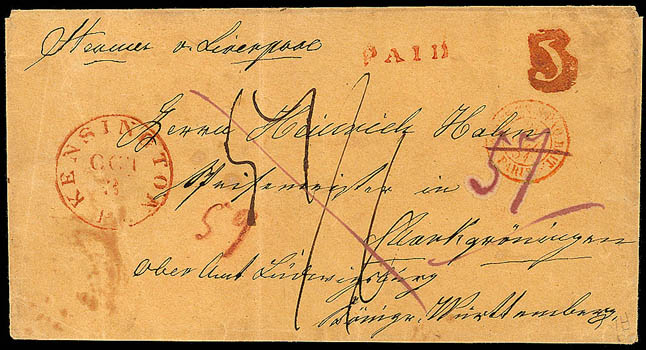 Steamer v. Liverpool
PAID
5
KENSINGTON
OCT
3
Herrn Heinrich Hahn
57
PARIS
in
59
Markgröningen
Oberamt Ludwigsburg
Königr. Württemberg